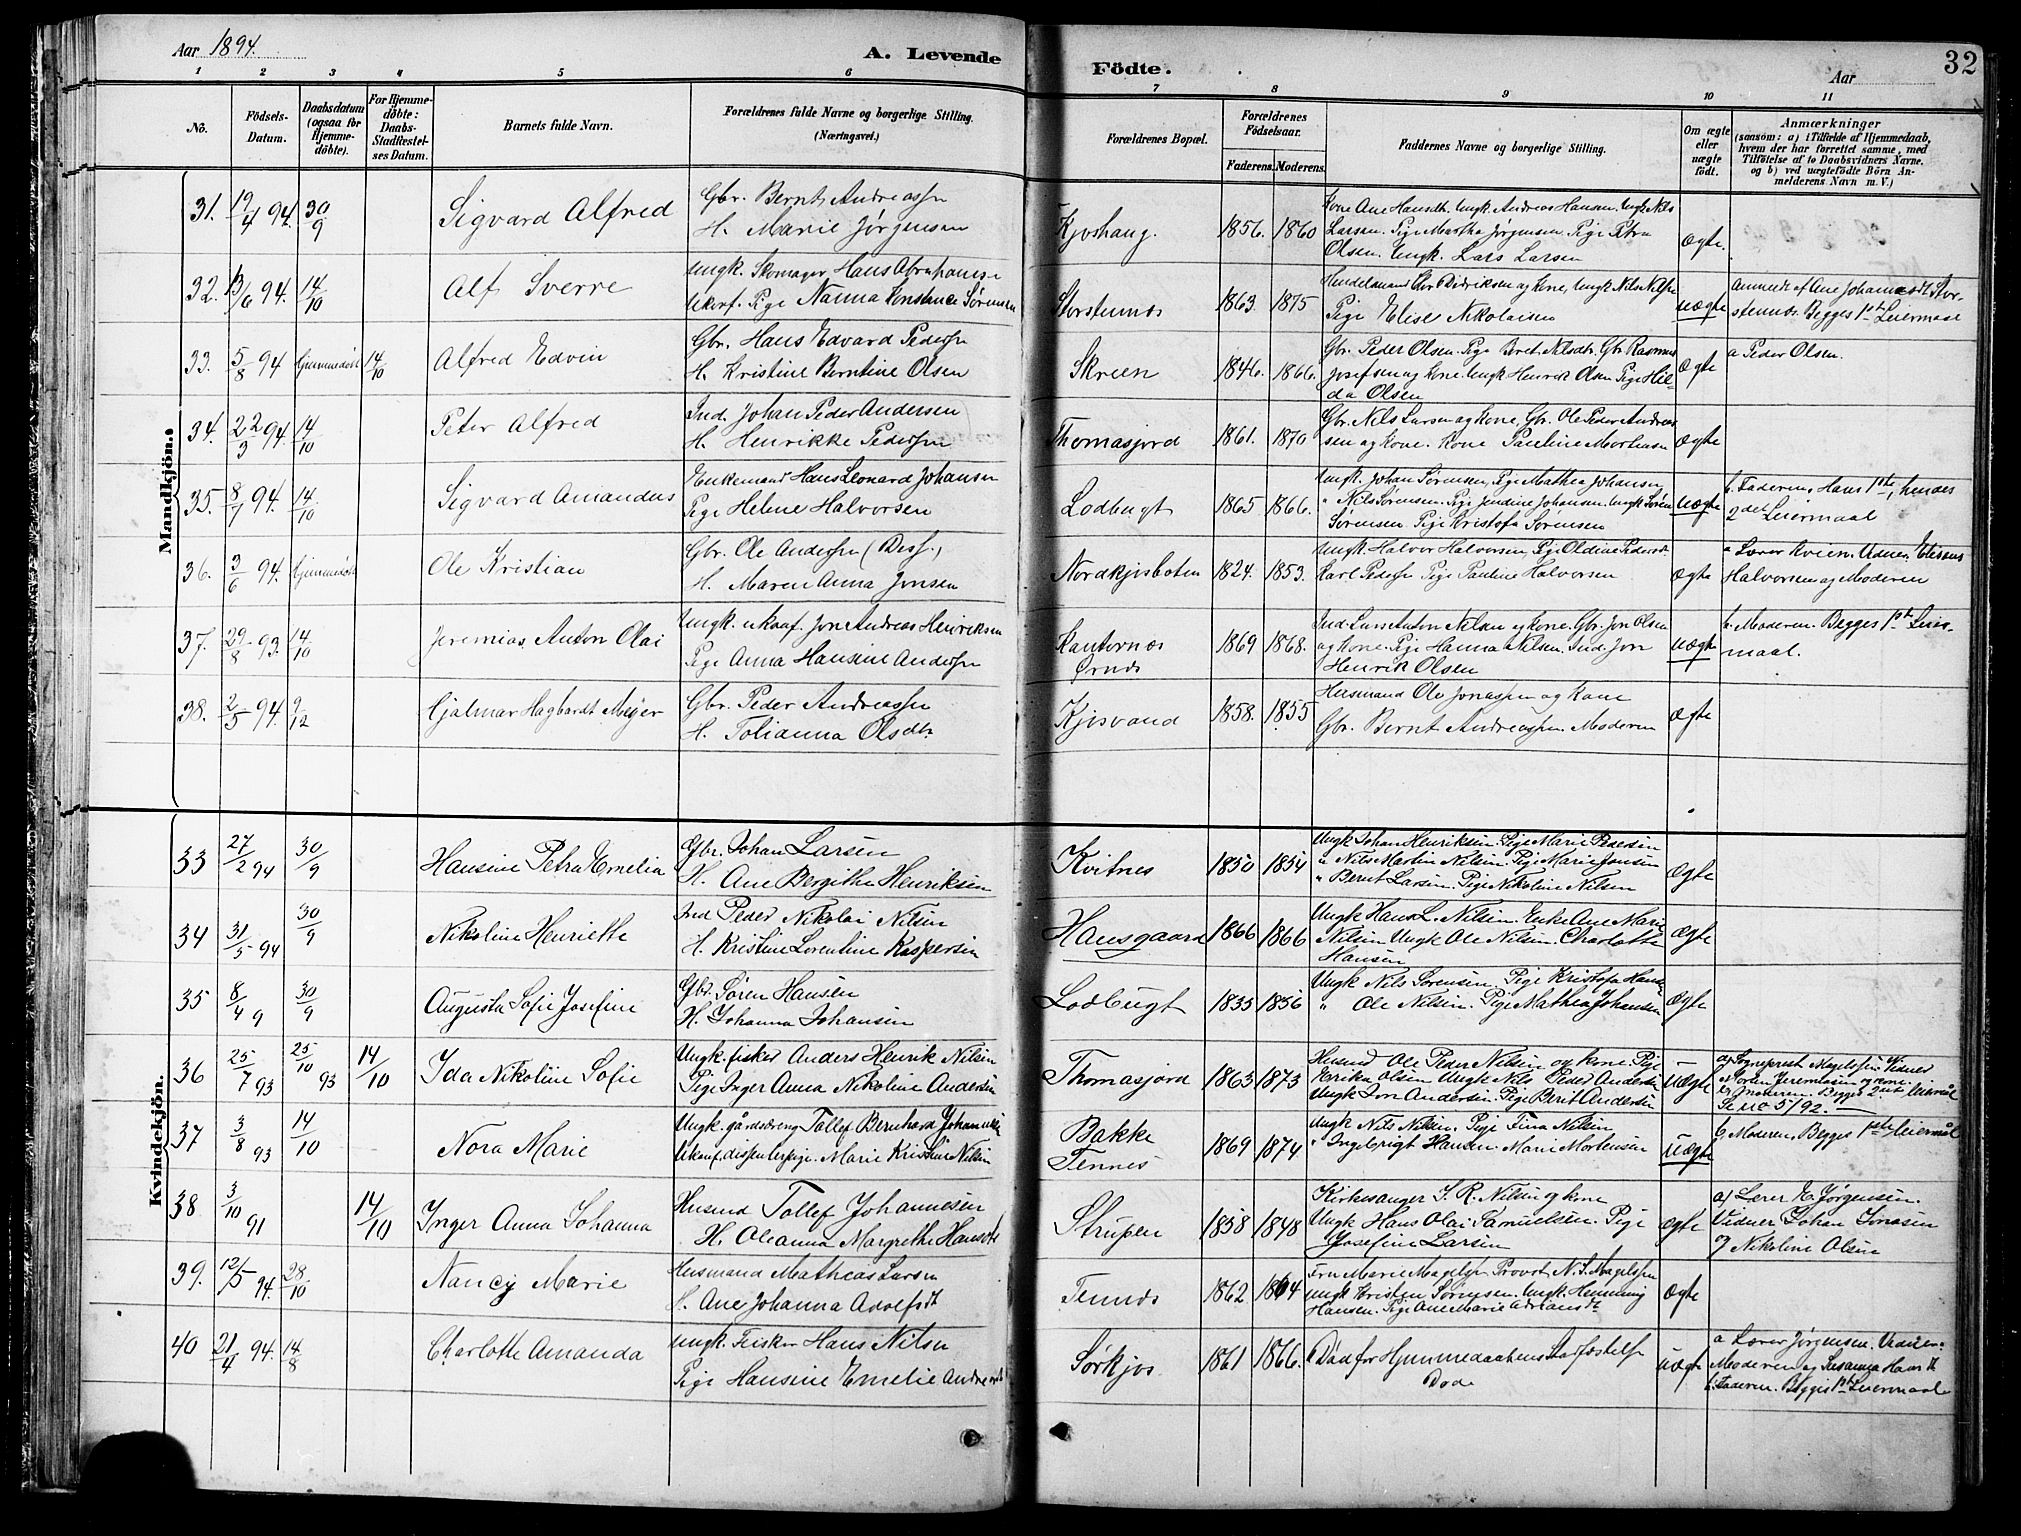 Aar 1894.
A. Levende Födte.
Aar
32
1 2 3 4 5 6 7 8 9 10 11
No.
Födsels-Datum.
Daabsdatum (ogsaa for Hjemme-döbte).
For Hjemme-döbte: Daabs-Stadfæstel-ses Datum.
Barnets fulde Navn.
Forældrenes fulde Navne og borgerlige Stilling.
(Næringsvei.)
Forældrenes Bopæl.
Forældrenes Födselsaar.
Faderens. Moderens.
Faddernes Navne og borgerlige Stilling.
Om ægte eller uægte födt.
Anmærkninger
(saasom: a) i Tilfælde af Hjemmedaab,
hvem der har forrettet samme, med
Tilföielse af to Daabsvidners Navne.
og b) ved uægtefödte Börn An-
melderens Navn m. V.)
Mandkjön.
31. 19/4 94. 30/9 Sigvard Alfred Gbr. Bernt Andreassen
H. Marie Jørgensen Kjoshaug. 1856. 1860 Kone Ane Hansdtr. Ungk. Andreas Hansen. Ungk. Nils
Larsen. Pige Martha Jørgensen. Pige Petra
Olsen. Ungk. Lars Larsen ægte.
32. 13/6 94. 14/10 Alf Sverre Ungk. Skomager Hans Abrahamse
Ukonf. Pige Nanna Konstance Sørensen Storstennæs 1863. 1875 Handelsmand Didriksen og Kone, Ungk Nils Nilsen
Pige Elise Nikolaisen uægte Anmeldt af Ane Johannesdt Stor-
stennæs. Begges 1ste Leiermaal
33. 5/8 94 Hjemmedøbt 14/10 Alfred Edvin Gbr. Hans Edvard Pedersen
H. Kristine Berntine Olsen Skreen 1846. 1866. Gbr. Peder Olsen. Pige Beret Nilsdtr. Gbr. Rasmus
Josefsen og Kone. Ungk Henrik Olsen Pige Hil-
da Olsen ægte a Peder Olsen.
34. 22/3 94 14/10 Peter Alfred Ind. Johan Peder Andersen
H. Henrikke Pedersen Thomasjord 1861. 1870 Gbr. Nils Larsen og Kone, Gbr. Ole Peder Andreas
sen og Kone. Kone Pauline Mortensen ægte
35. 8/7 94. 14/10 Sigvard Amandus Enkemand Hans Leonard Johansen
Pige Helene Halvorsen Lodbugt 1865 1866. Ungk. Johan Sørensen, Pige Mathea Johansen,
" Nils Sørensen. Pige Jendine Johansen. Ungk Søren
Sørensen Pige Kristofa Sørensen uægte b. Faderen, Hans 1ste, hendes
2det Leiermaal
36. 3/6 94. Hjemmedøbt Ole Kristian Gbr. Ole Andersen (Diss.)
H. Maren Anna Jonsen Nordkjosboten 1824. 1853. Ungk. Halvor Halvorsen, Pige Oldine Pedersdt
Karl Pedersen Pige Pauline Halvorsen ægte a Lærer Kvien. Vidner. Elisæus
Halvorsen og Moderen
37. 29/8 93. 14/10 Jeremias Anton Olai Ungk. ukonf. Jon Andreas Henriksen
Pige Anna Hansine Andersen Kantornæs
Ørnes 1869 1868. Ind. Lars Anton Nilsen og Kone. Gbr. Jon Olsen
og Kone. Pige Hanna Nilsen. Ind. Jon
Henrik Olsen uægte b. Moderen. Begges 1ste Leier-
maal.
38. 2/5 94. 9/12 Hjalmar Hagbardt Meyer Gbr. Peder Andreassen
H. Tolianna Olsdtr. Kjosvand 1858. 1855 Husmand Ole Jonassen og Kone
Gbr. Bernt Andreassen. Moderen ægte
Kvindekjön.
33 27/2 94 30/9 Hansine Petra Emelia Gbr. Johan Larsen
H. Ane Bergithe Henriksen Kvitnes 1850 1854 Ungk Johan Henriksen Pige Marie Pedersen
" Nils Martin Nilsen. Pige Marie Jonsen
" Bernt Larsen. Pige Nikoline Nilsen ægte
34 31/5 94 30/9 Nikoline Henriette Ind Peder Nikolai Nilsen
H. Kristine Lorentine Kaspersen Hansgaard 1866 1866 Ungk Hans L. Nilsen. Enke Ane Marie
Nilsen Ungk Ole Nilsen. Charlotte
Hansen ægte
35 8/4 9 30/9 Augusta Sofie Josefine Gbr. Søren Hansen
H. Johanna Johansen Lodbugt 1835 1856 Ungk Nils Sørensen. Pige Kristofa Hans
" Ole Nilsen. Pige Mathea Johansen ægte
36 25/7 93 25/10 93 14/10 Ida Nikoline Sofie Ungk. fisker Anders Henrik Nilsen
Pige Inger Anna Nikoline Andersen Thomasjord 1863 1873 Husmd Ole Peder Nilsen og kone. Pige
Erika Olsen Ungk Nils Peder Andersen
Ungk Jon Andersen. Pige Berit Andersen uægte a) Sogneprest Magelssen. Vidner
Morten Jeremiasen og kone
b) Moderen. Begges 2det leiermål
Se no 5/92.
37 3/8 93 14/10 Nora Marie Ungk. gårdsdreng Tollef Bernhard Johannesen
Ukonf. dissenterpige. Marie Kristine Nilsen Bakke
Tennes 1869 1874 Ungk Nils Nilsen. Pige Tina Nilsen
" Ingebrigt Hansen. Marie Mortensen uægte b Moderen. Begges 1ste leiermål
38 3/10 91 14/10 Inger Anna Johanna Husmd Tollef Johannesen
H. Oleanna Margrethe Hansdt Strupen 1858 1848 Kirkesanger S. R. Nilsen og kone
Ungk Hans Olai Samuelsen. Pige
Josefine Larsen ægte a) Lærer E. Jørgensen.
Vidner Johan Jonasen
og Nikoline Olsen
39. 12/5 94. 28/10 Nancy Marie Husmand Mathias Larsen
H. Ane Johanna Adolfsdt Tennæs 1862 1864 Fru Marie Magelssen Provst N. S. Magelssen
Ungk Kristen Sørensen. Ungk. Henning
Hansen. Pige Ane Marie Adriansdt ægte
40 21/4 94. 14/8 Charlotte Amanda Ungk. Fisker Hans Nilsen
Pige Hansine Emelie Andreasdt Sørkjos 1861 1866. Død før Hjemmedaabens Stadfæstelse
Døde uægte a Lærer Jørgensen. Vidner.
Moderen og Susanna Hansdt
b. Faderen. Begges 1ste Leiermaal